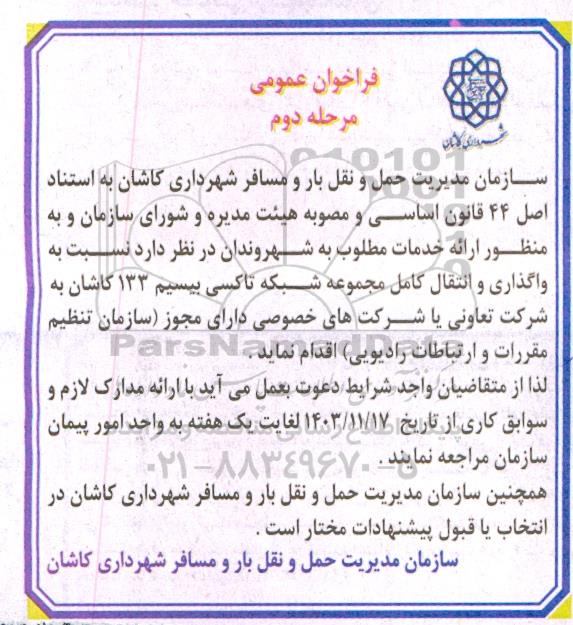 فراخوان عمومی
مرحله دوم
شهرداری کاشان
سازمان مدیریت حمل و نقل بار و مسافر شهرداری کاشان به استناد
اصل ۴۴ قانون اساسی و مصوبه هیئت مدیره و شورای سازمان و به
منظور ارائه خدمات مطلوب به شهروندان در نظر دارد نسبت به
واگذاری و انتقال کامل مجموعه شبکه تاکسی بیسیم ۱۳۳ کاشان به
شرکت تعاونی یا شرکت های خصوصی دارای مجوز (سازمان تنظیم
مقررات و ارتباطات رادیویی) اقدام نماید .
ParsNamadData
لذا از متقاضیان واجد شرایط دعوت بعمل می آید با ارائه مدارک لازم و
سوابق کاری از تاریخ ۱۴۰۳/۱۱/۱۷ لغایت یک هفته به واحد امور پیمان
سازمان مراجعه نمایند .
۰۲۱-۸۸۳۴۹۶۷۰-۵
همچنین سازمان مدیریت حمل و نقل بار و مسافر شهرداری کاشان در
انتخاب یا قبول پیشنهادات مختار است .
سازمان مدیریت حمل و نقل بار و مسافر شهرداری کاشان